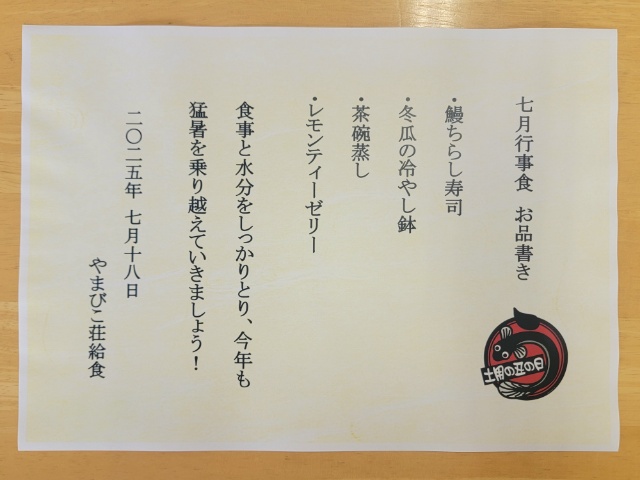 七月行事食　お品書き
土用の丑の日
・鰻ちらし寿司
・冬瓜の冷やし鉢
・茶碗蒸し
・レモンティーゼリー
食事と水分をしっかりとり、今年も
猛暑を乗り越えていきましょう！
二〇二五年 七月十八日
やまびこ荘給食